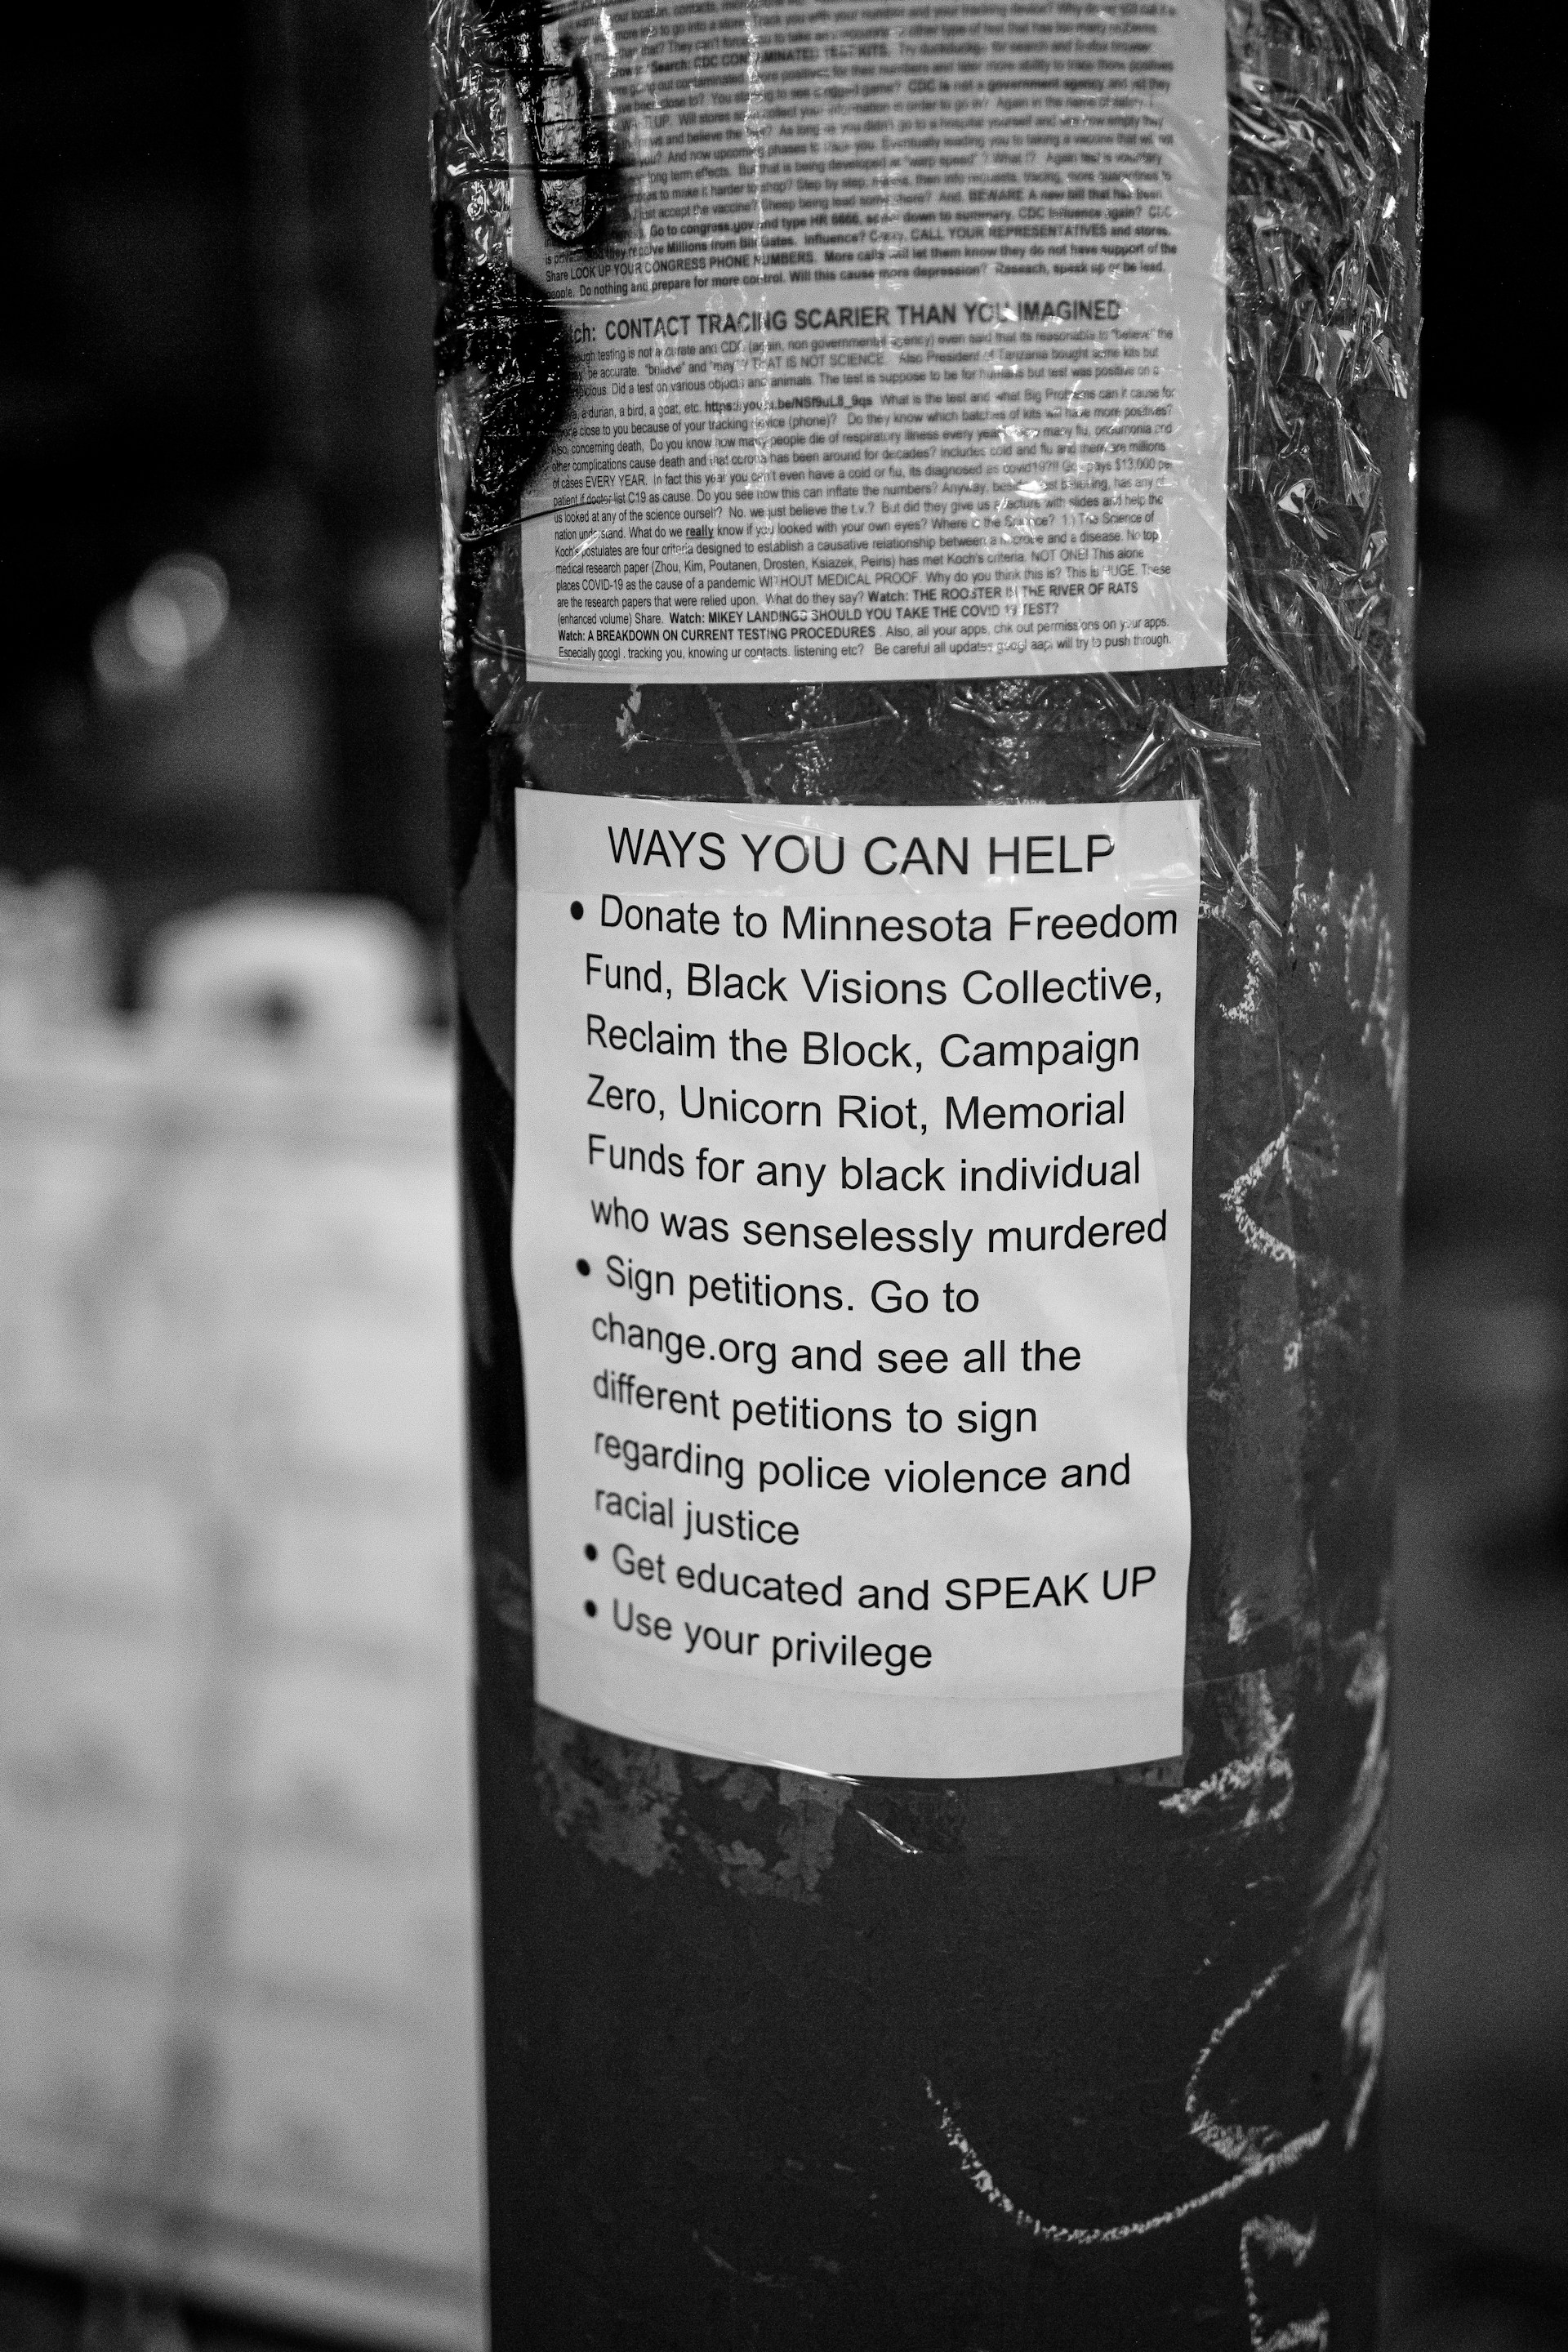 more info to go into a store. Track you with your number and your tracking device? Why do
that? They can't force you to take an
Search: CDC CONTAMINATED TEST KITS. Try duckduckgo for search and firefox browser.
CDC is not a government agency and
WAKE UP. Will stores collect your information in order to go in? Again in the name of safety.
news and believe the As long as you didn't go to a hospital yourself and see how empty they
you? And now upcoming phases to you. Eventually leading you to taking a vaccine that will not
long term effects. But that is being developed at "warp speed"? What !? Again test is voluntary
to make it harder to shop? Step by step. then info requests, tracing, more quarantines to
just accept the vaccine? Sheep being lead somewhere? And. BEWARE A new bill that has been
Go to congress.gov and type HR 6666, scroll down to summary. CDC Influence again? CDC
is and they receive Millions from Bill Gates. Influence? Crazy. CALL YOUR REPRESENTATIVES and stores.
Share LOOK UP YOUR CONGRESS PHONE NUMBERS. More calls will let them know they do not have support of the
people. Do nothing and prepare for more control. Will this cause more depression? Reseach, speak up or be lead.
tch: CONTACT TRACING SCARIER THAN YOU IMAGINED
ough testing is not accurate and CDC (again, non governmental agency) even said that its reasonable to "believe" the
be accurate. "believe" and "may"? THAT IS NOT SCIENCE. Also President of Tanzania bought some kits but
icious. Did a test on various objects and animals. The test is suppose to be for humans but test was positive on a
a durian, a bird, a goat, etc. What is the test and what Big Problems can it cause for
close to you because of your tracking device (phone)? Do they know which batches of kits will have more positives?
Also, concerning death, Do you know how many people die of respiratory illness every year many flu, pneumonia and
other complications cause death and that corona has been around for decades? Includes cold and flu and there are millions
of cases EVERY YEAR. In fact this year you can't even have a cold or flu, its diagnosed as covid19?!! pays $13,000 per
patient if doctor list C19 as cause. Do you see how this can inflate the numbers? Anyway, besides just believing, has any of
us looked at any of the science ourself? No. we just believe the t.v.? But did they give us a lecture with slides and help the
nation understand. What do we really know if you looked with your own eyes? Where is the Science? 1.) The Science of
Koch's postulates are four criteria designed to establish a causative relationship between a microbe and a disease. No top
medical research paper (Zhou, Kim, Poutanen, Drosten, Ksiazek, Peiris) has met Koch's criteria. NOT ONE! This alone
places COVID-19 as the cause of a pandemic WITHOUT MEDICAL PROOF. Why do you think this is? This is HUGE. These
are the research papers that were relied upon. What do they say? Watch: THE ROOSTER IN THE RIVER OF RATS
(enhanced volume) Share. Watch: MIKEY LANDINGS SHOULD YOU TAKE THE COVID 19 TEST?
Watch: A BREAKDOWN ON CURRENT TESTING PROCEDURES . Also, all your apps, chk out permissions on your apps.
Especially googl . tracking you, knowing ur contacts. listening etc? Be careful all updates googl aapl will try to push through.
WAYS YOU CAN HELP
• Donate to Minnesota Freedom
Fund, Black Visions Collective,
Reclaim the Block, Campaign
Zero, Unicorn Riot, Memorial
Funds for any black individual
who was senselessly murdered
• Sign petitions. Go to
change.org and see all the
different petitions to sign
regarding police violence and
racial justice
• Get educated and SPEAK UP
• Use your privilege